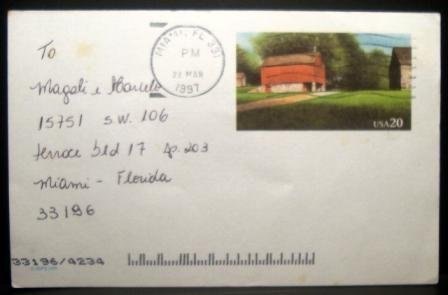 To
Magali e Marcelo
15751 S.W. 106
terrace bld 17 Ap. 203
Miami - Florida
33196
MIAMI, FL 331
PM
22 MAR
1997
USA 20
33196/4234